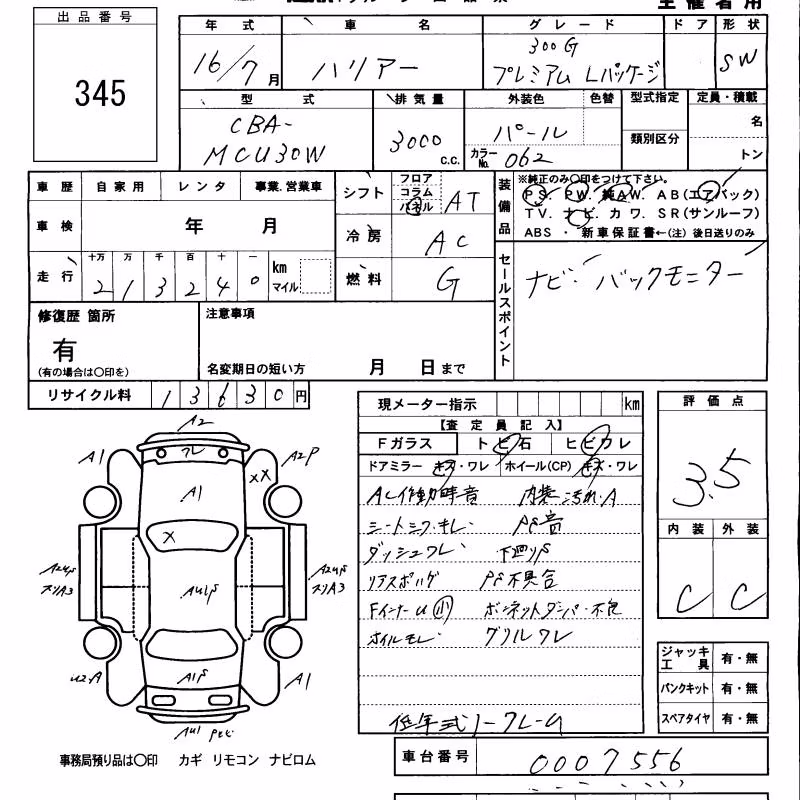 出品番号
345
年式 車名 グレード ドア 形状
16/7月 ハリアー 300G プレミアム Lパッケージ SW
型式 排気量 外装色 色替 型式指定 定員・積載
CBA-
MCU30W 3000 c.c. パール
カラーNo. 062 類別区分 名
トン
車歴 自家用 レンタ 事業.営業車
車検 年 月
走行 十万 万 千 百 十 一
2 1 3 2 4 0 km マイル
シフト フロア コラム パネル AT
冷房 AC
燃料 G
装備品
※純正のみ〇印をつけて下さい。
PS. PW. 純AW. AB(エアバック)
TV. ナビ. カワ. SR(サンルーフ)
ABS ・ 新車保証書←(注) 後日送りのみ
セールスポイント
ナビ・バックモニター
修復歴 箇所
有
(有の場合は〇印を)
注意事項
名変期日の短い方 月 日まで
リサイクル料 1 3 6 3 0 円
現メーター指示 km
【査定員記入】
Fガラス トビ石 ヒビワレ
ドアミラー キズ・ワレ ホイール(CP) キズ・ワレ
ACイ作動時音 内装汚れ・A
シートシワ・キレ PS音
ダッシュワレ 下廻りS
PS不具合
ボンネットダンパー不良
グリルワレ
評価点
3.5
内装 外装
C C
ジャッキ工具 有・無
パンクキット 有・無
スペアタイヤ 有・無
A2
ワレ
A1
A2P
XX
A1
X
A1
事務局預り品は〇印 カギ リモコン ナビロム
車台番号 0007556